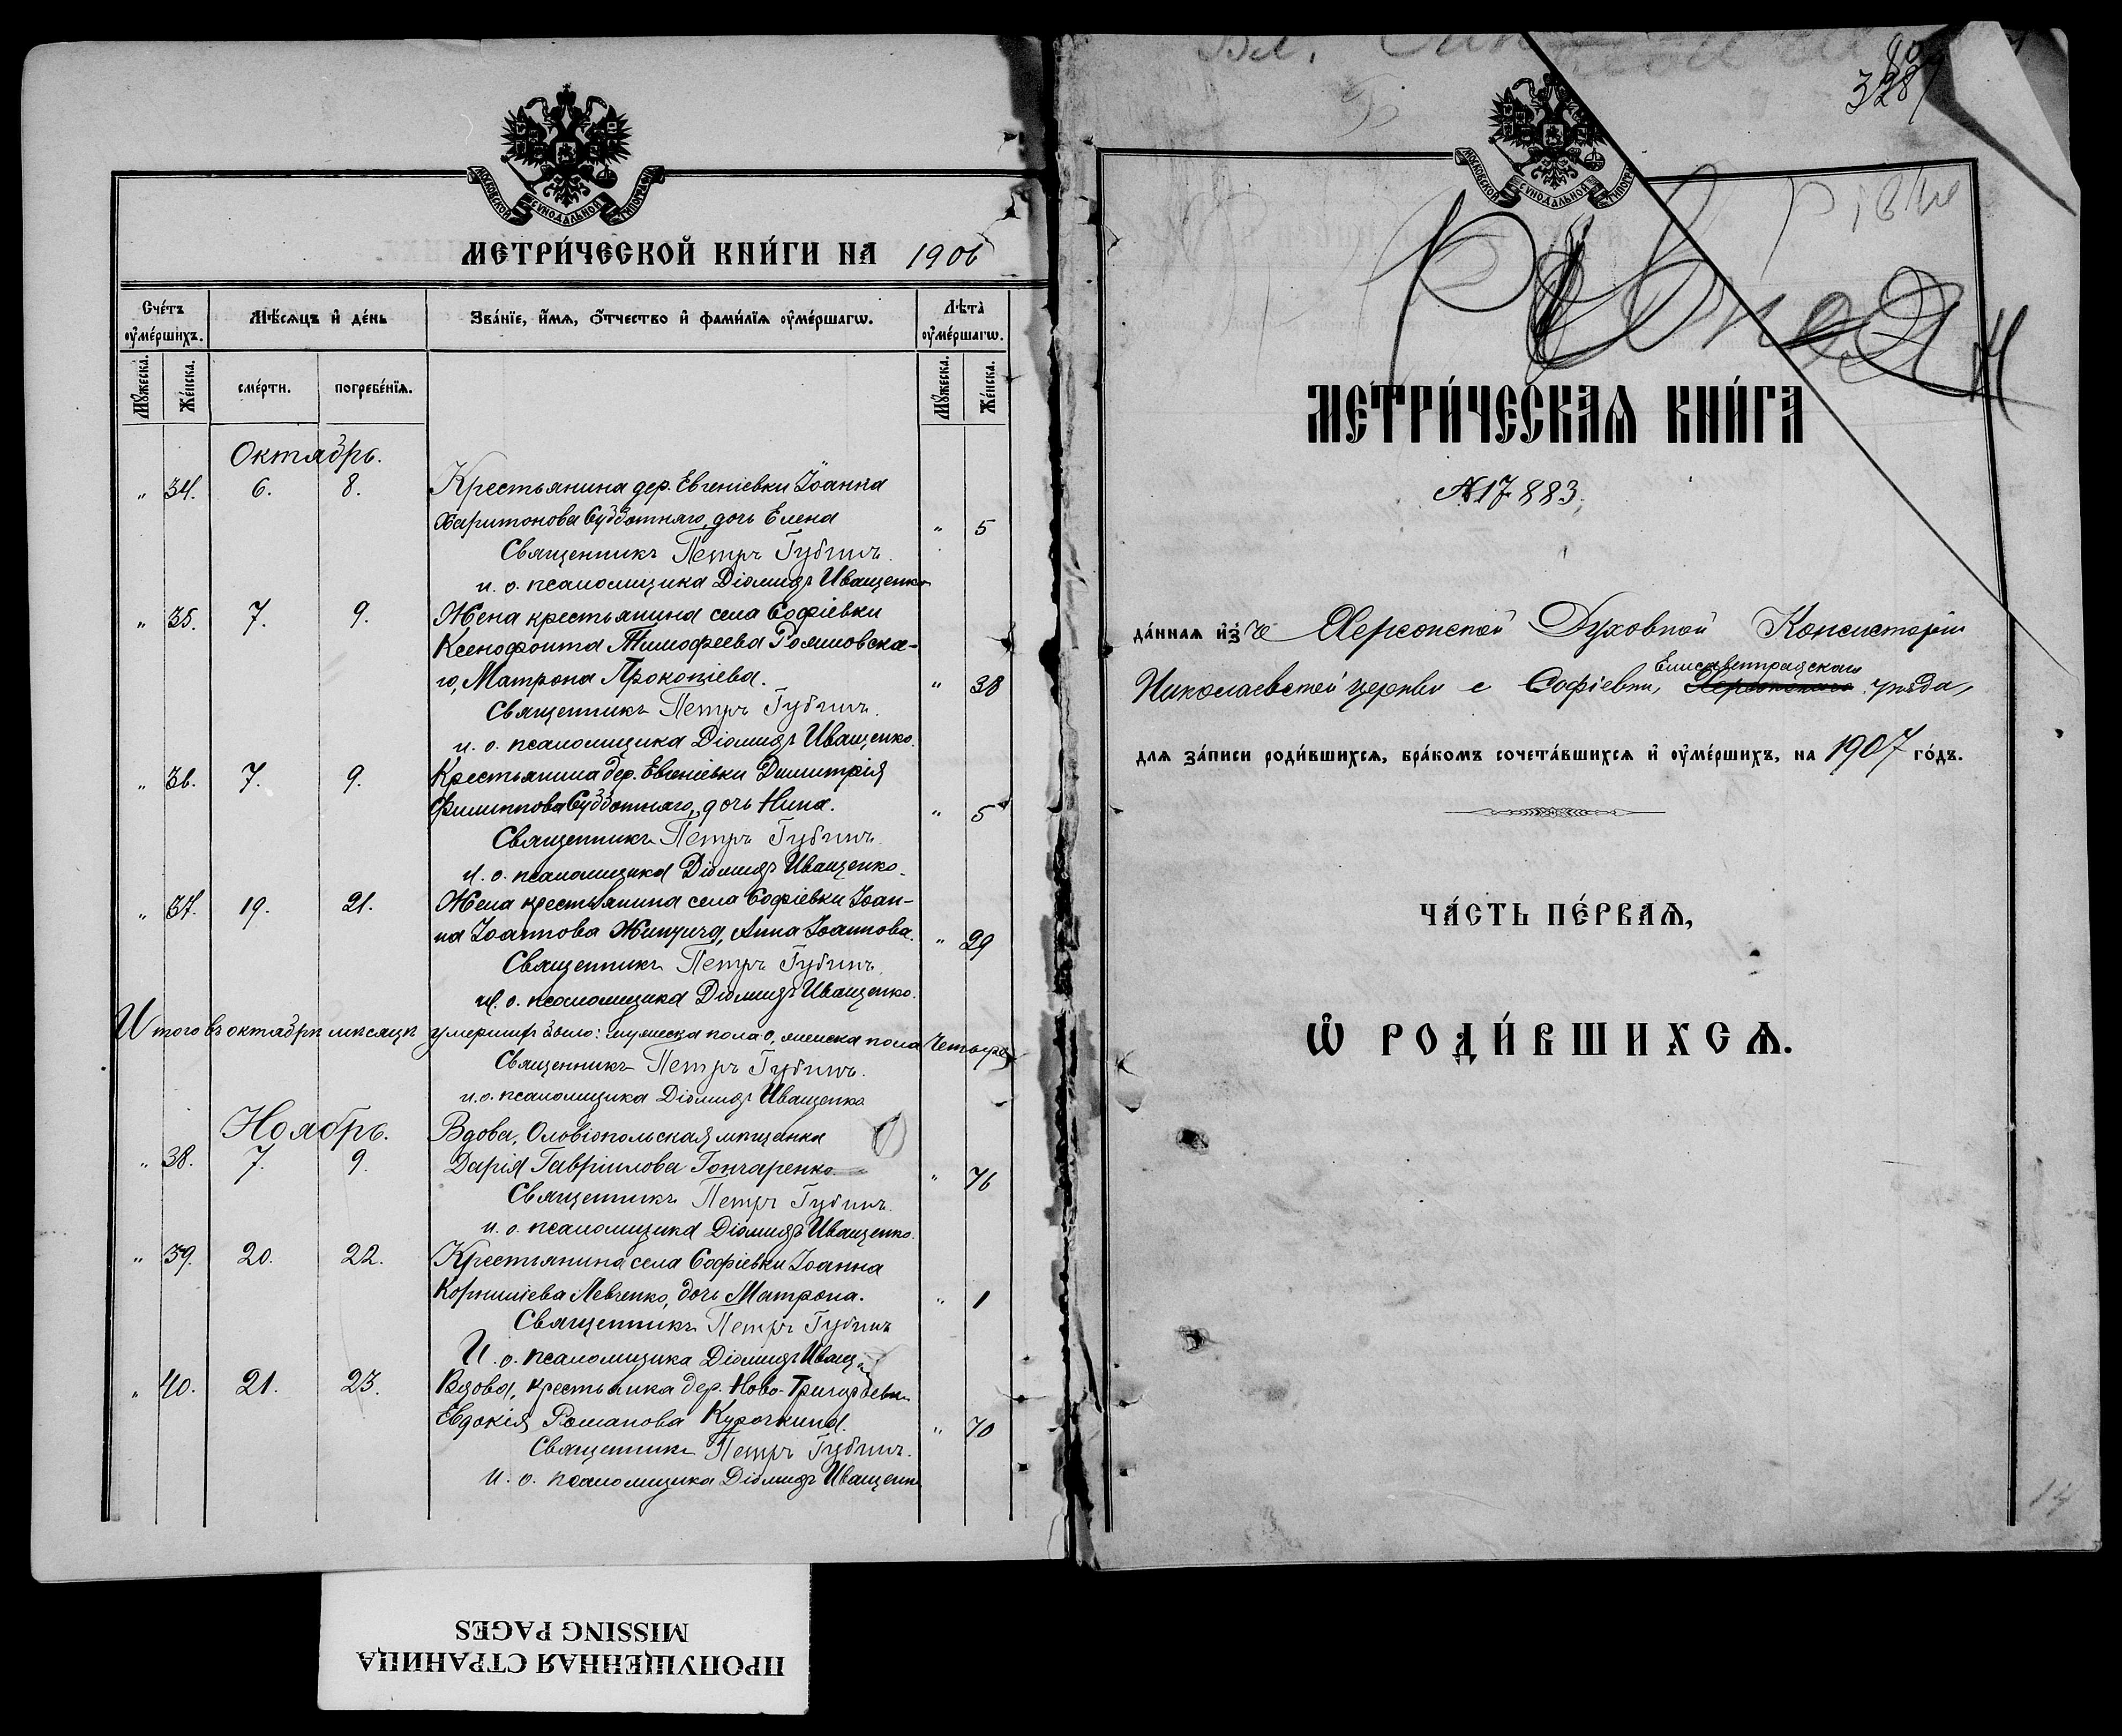 МОСКОВСКОЙ СѴНОДАЛЬНОЙ ТИПОГРАФІИ
МЕТРИ́ЧЕСКОЙ КНИ́ГИ НА 1906
Сче́тъ ᲂу҆ме́ршихъ.
Мѣ́сяцъ и҆ де́нь
Зва́нїе, и҆́мя, ѻ҆́тчество и҆ фами́лїя ᲂу҆ме́ршагѡ.
Лѣ́та ᲂу҆ме́ршагѡ.
Мꙋ́жеска.
Же́нска.
сме́рти.
погребе́нїя.
Мꙋ́жеска.
Же́нска.
Октябрь.
" 34. 6. 8. Крестьянина дер. Евгеніевки Іоанна
Харитонова Субботняго, дочь Елена " 5
Священникъ Петръ Губинъ.
и. о. псаломщика Діомидъ Иващенко
" 35. 7. 9. Жена крестьянина села Софіевки
Ксенофонта Тимофеева
го, Матрона Прокопіева. " 38
Священникъ Петръ Губинъ.
и. о. псаломщика Діомидъ Иващенко.
" 36. 7. 9. Крестьянина дер. Евгеніевки Димитрія
Филиппова Субботняго, дочь Нина. " 5
Священникъ Петръ Губинъ.
и. о. псаломщика Діомидъ Иващенко.
" 37. 19. 21. Жена крестьянина села Софіевки Іоан-
на Іоаннова Анна Іоаннова. " 29
Священникъ Петръ Губинъ.
и. о. псаломщика Діомидъ Иващенко.
Итого въ октябрѣ мѣсяцѣ умершихъ было: мужеска пола 0, женска пола четыре
Священникъ Петръ Губинъ.
и. о. псаломщика Діомидъ Иващенко
Ноябрь. Вдова, Оловіопольская мѣщанка
" 38. 7. 9. Дарія Гавріилова Гончаренко. " 76
Священникъ Петръ Губинъ.
и. о. псаломщика Діомидъ Иващенко.
" 39. 20. 22. Крестьянина села Софіевки Іоанна
Корниліева Левченко, дочь Матрона. " 1
Священникъ Петръ Губинъ
И. о. псаломщика Діомидъ Иващ
" 40. 21. 23. Вдова, крестьянка дер. Ново-Григорьевки
Евдокія Романова Курочкина. " 70
Священникъ Петръ Губинъ.
и. о. псаломщика Діомидъ Иващенк
ПРОПУЩЕННАЯ СТРАНИЦА
MISSING PAGES
328
МОСКОВСКОЙ СѴНОДАЛЬНОЙ ТИПОГР
МЕТРИ́ЧЕСКАЯ КНИ́ГА
№ 17883.
да́нная и҆зъ Херсонской Духовной Консисторіи
Елисаветградскаго
Николаевской церкви с Софіевки, Херсонскаго уѣзда,
для за́писи роди́вшихся, бра́комъ сочета́вшихся и҆ ᲂу҆ме́ршихъ, на 1907 го́дъ.
ЧА́СТЬ ПЕ́РВАЯ,
Ѡ҆ РОДИ́ВШИХСЯ.
14